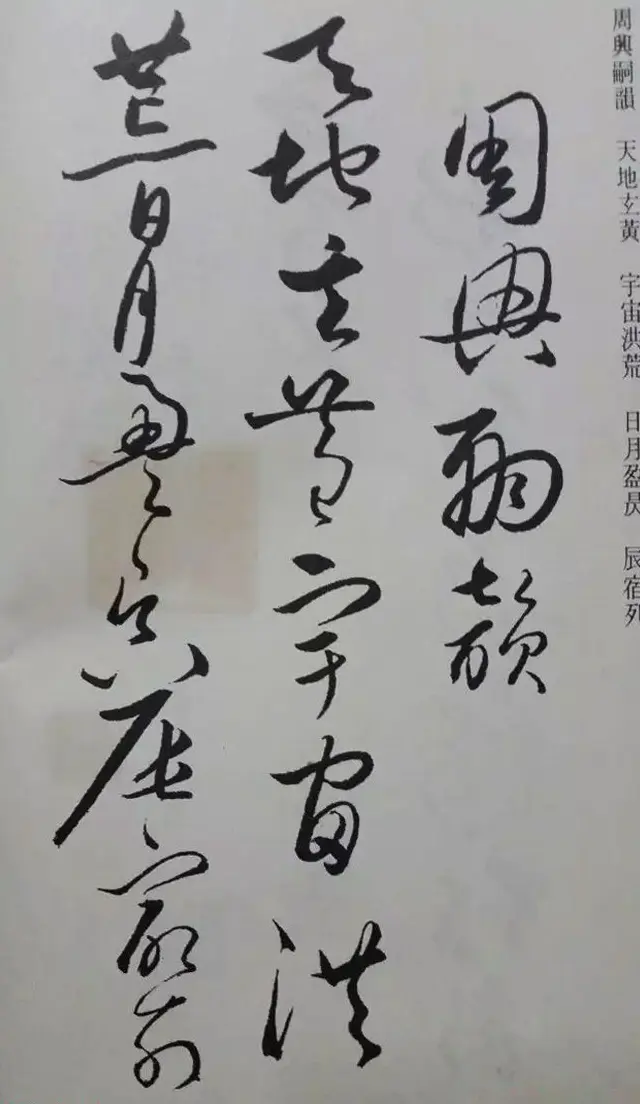 周興嗣韻 天地玄黃 宇宙洪荒 日月盈昃 辰宿列
周興嗣韻
天地玄黃宇宙洪
荒日月盈昃辰宿列